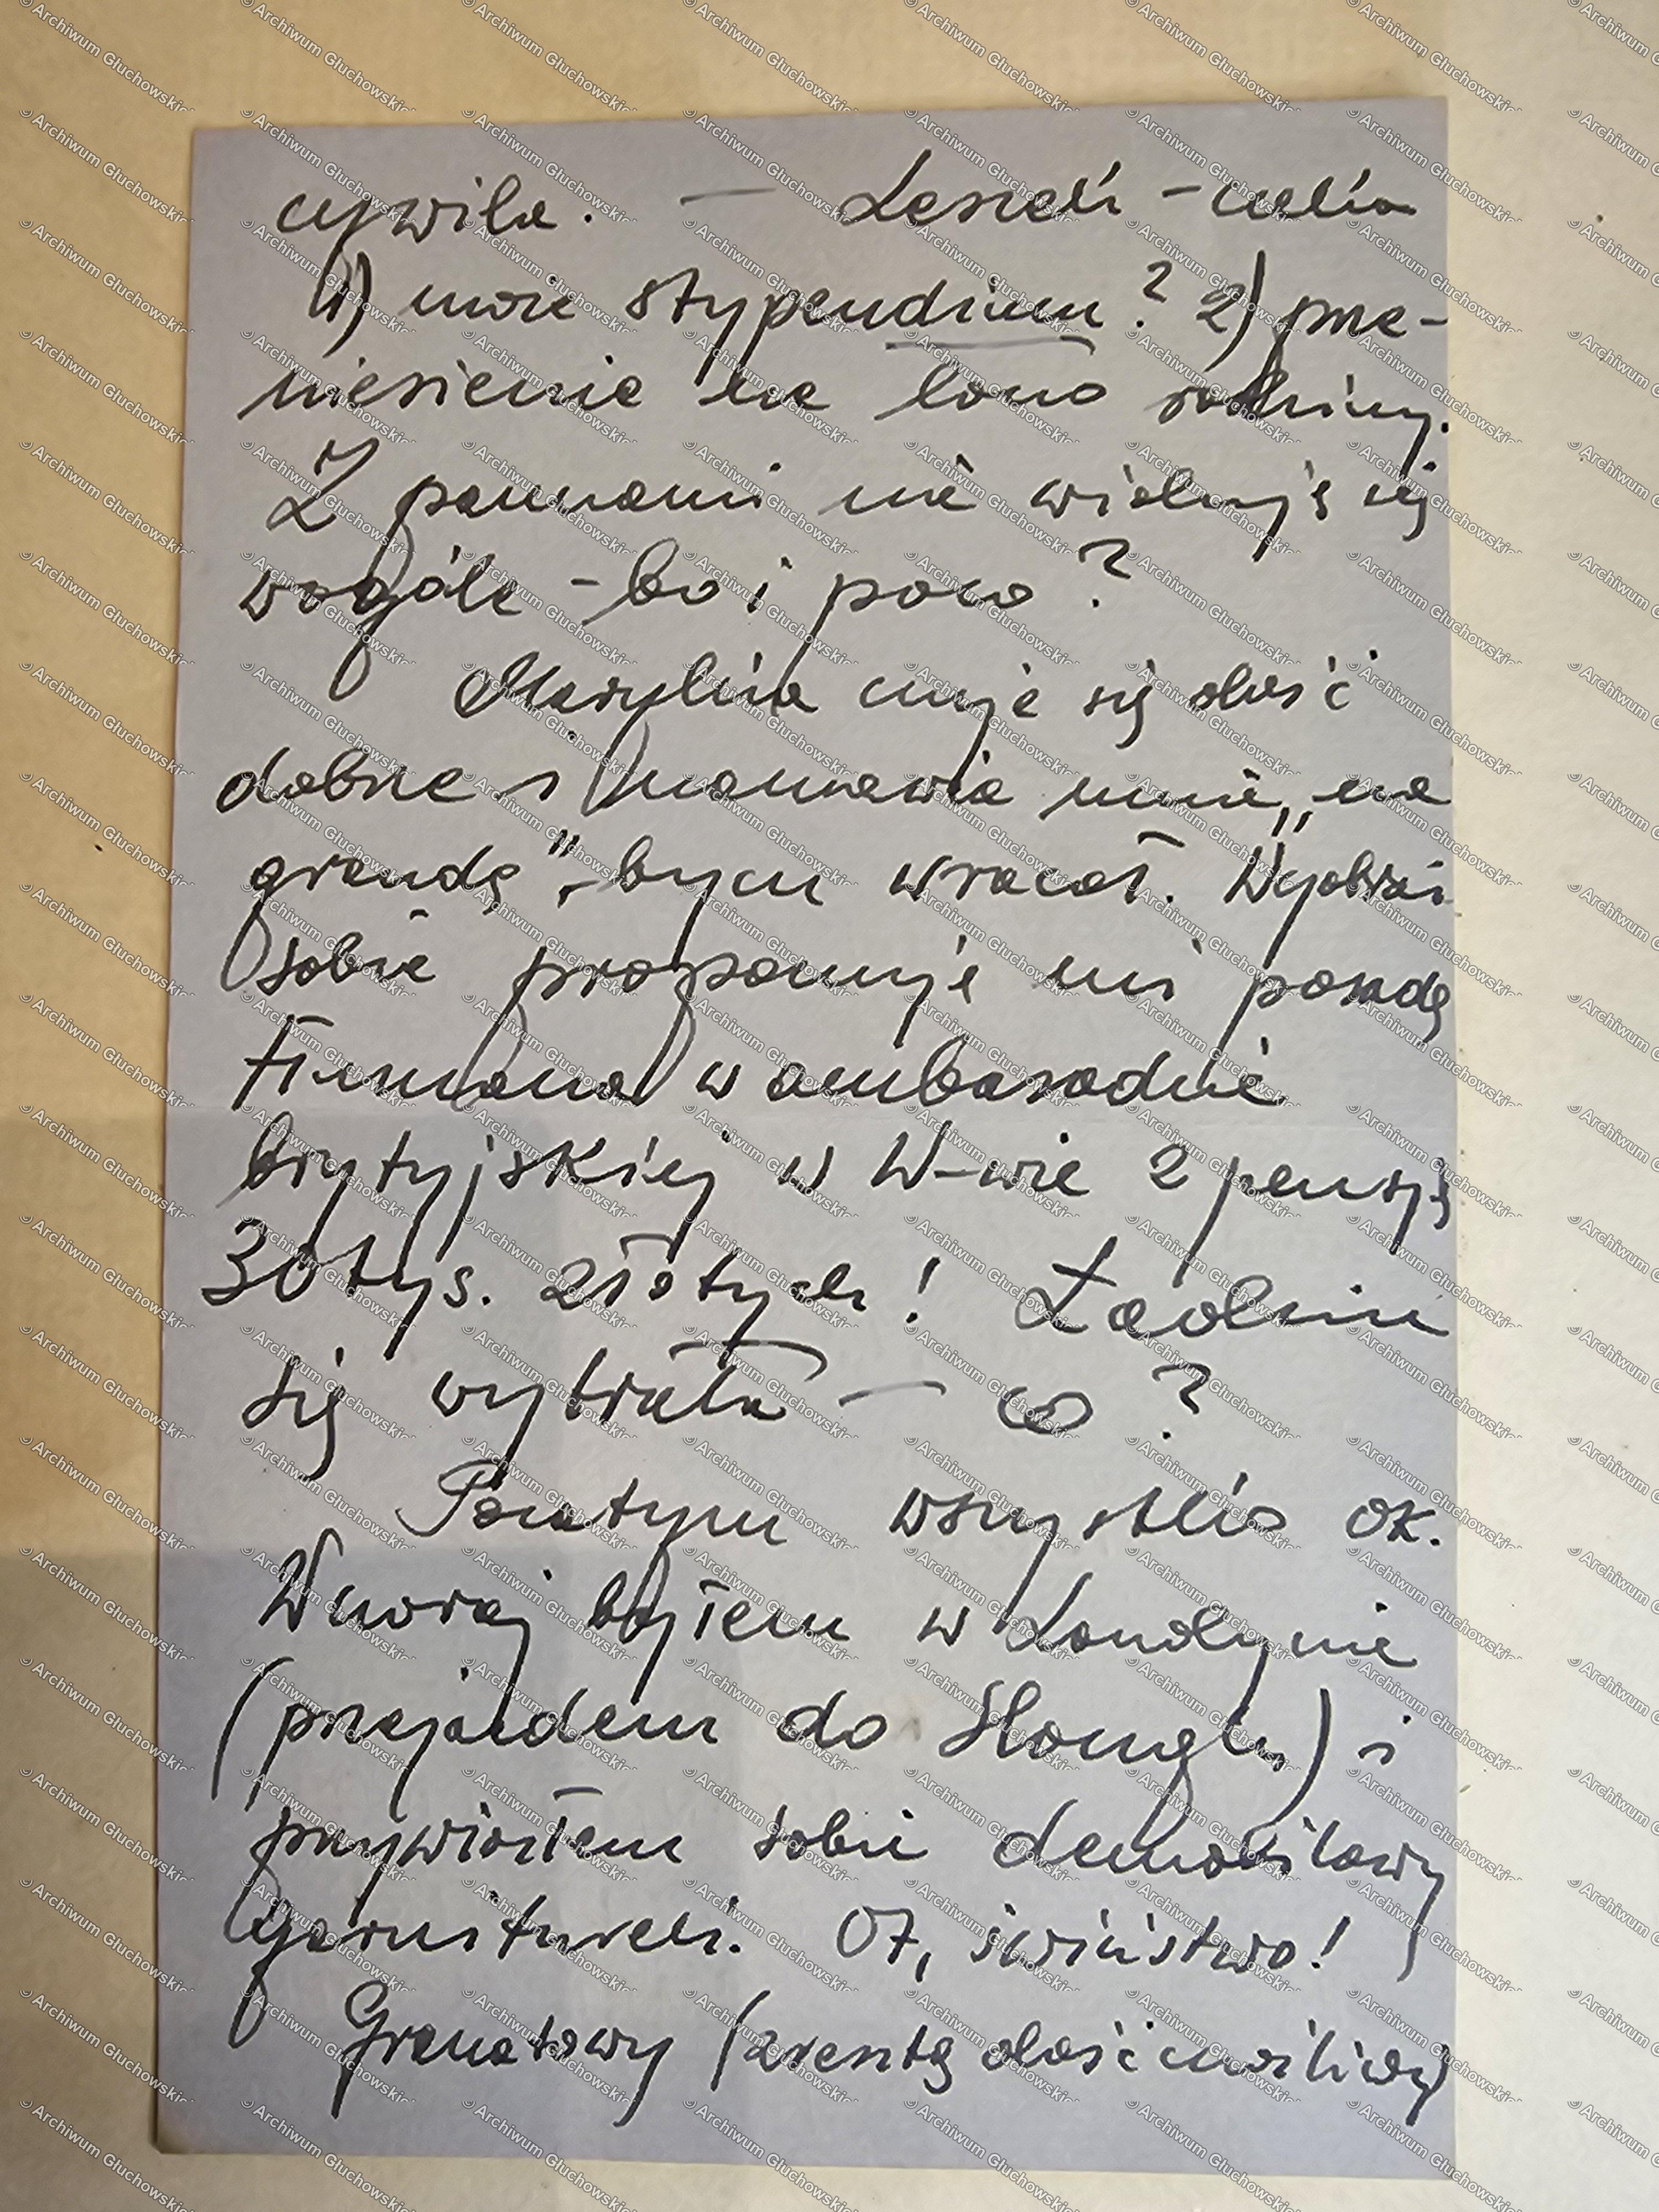 cywila. — Leszek – czeka
1) może stypendium? 2) prze-
niesienie na łono rodziny.
Z pannami nie widuję się
wogóle – bo i poco?
Marylka czuje się dość
dobrze i namawia mnie „na
grandę”, bym wracał. Wyobraź
sobie proponuje mi posadę
tłumacza w ambasadzie
brytyjskiej w W-wie z pensją
30 tys. złotych! Ładnie
się wybrała — co?
Pozatym wszystko OK.
Wczoraj byłem w Londynie
(przejazdem do Slough) i
przywiozłem sobie demobilowy
garniturek. Ot, świństwo!
Granatowy (zresztą dość możliwy)
© Archiwum Głuchowskich